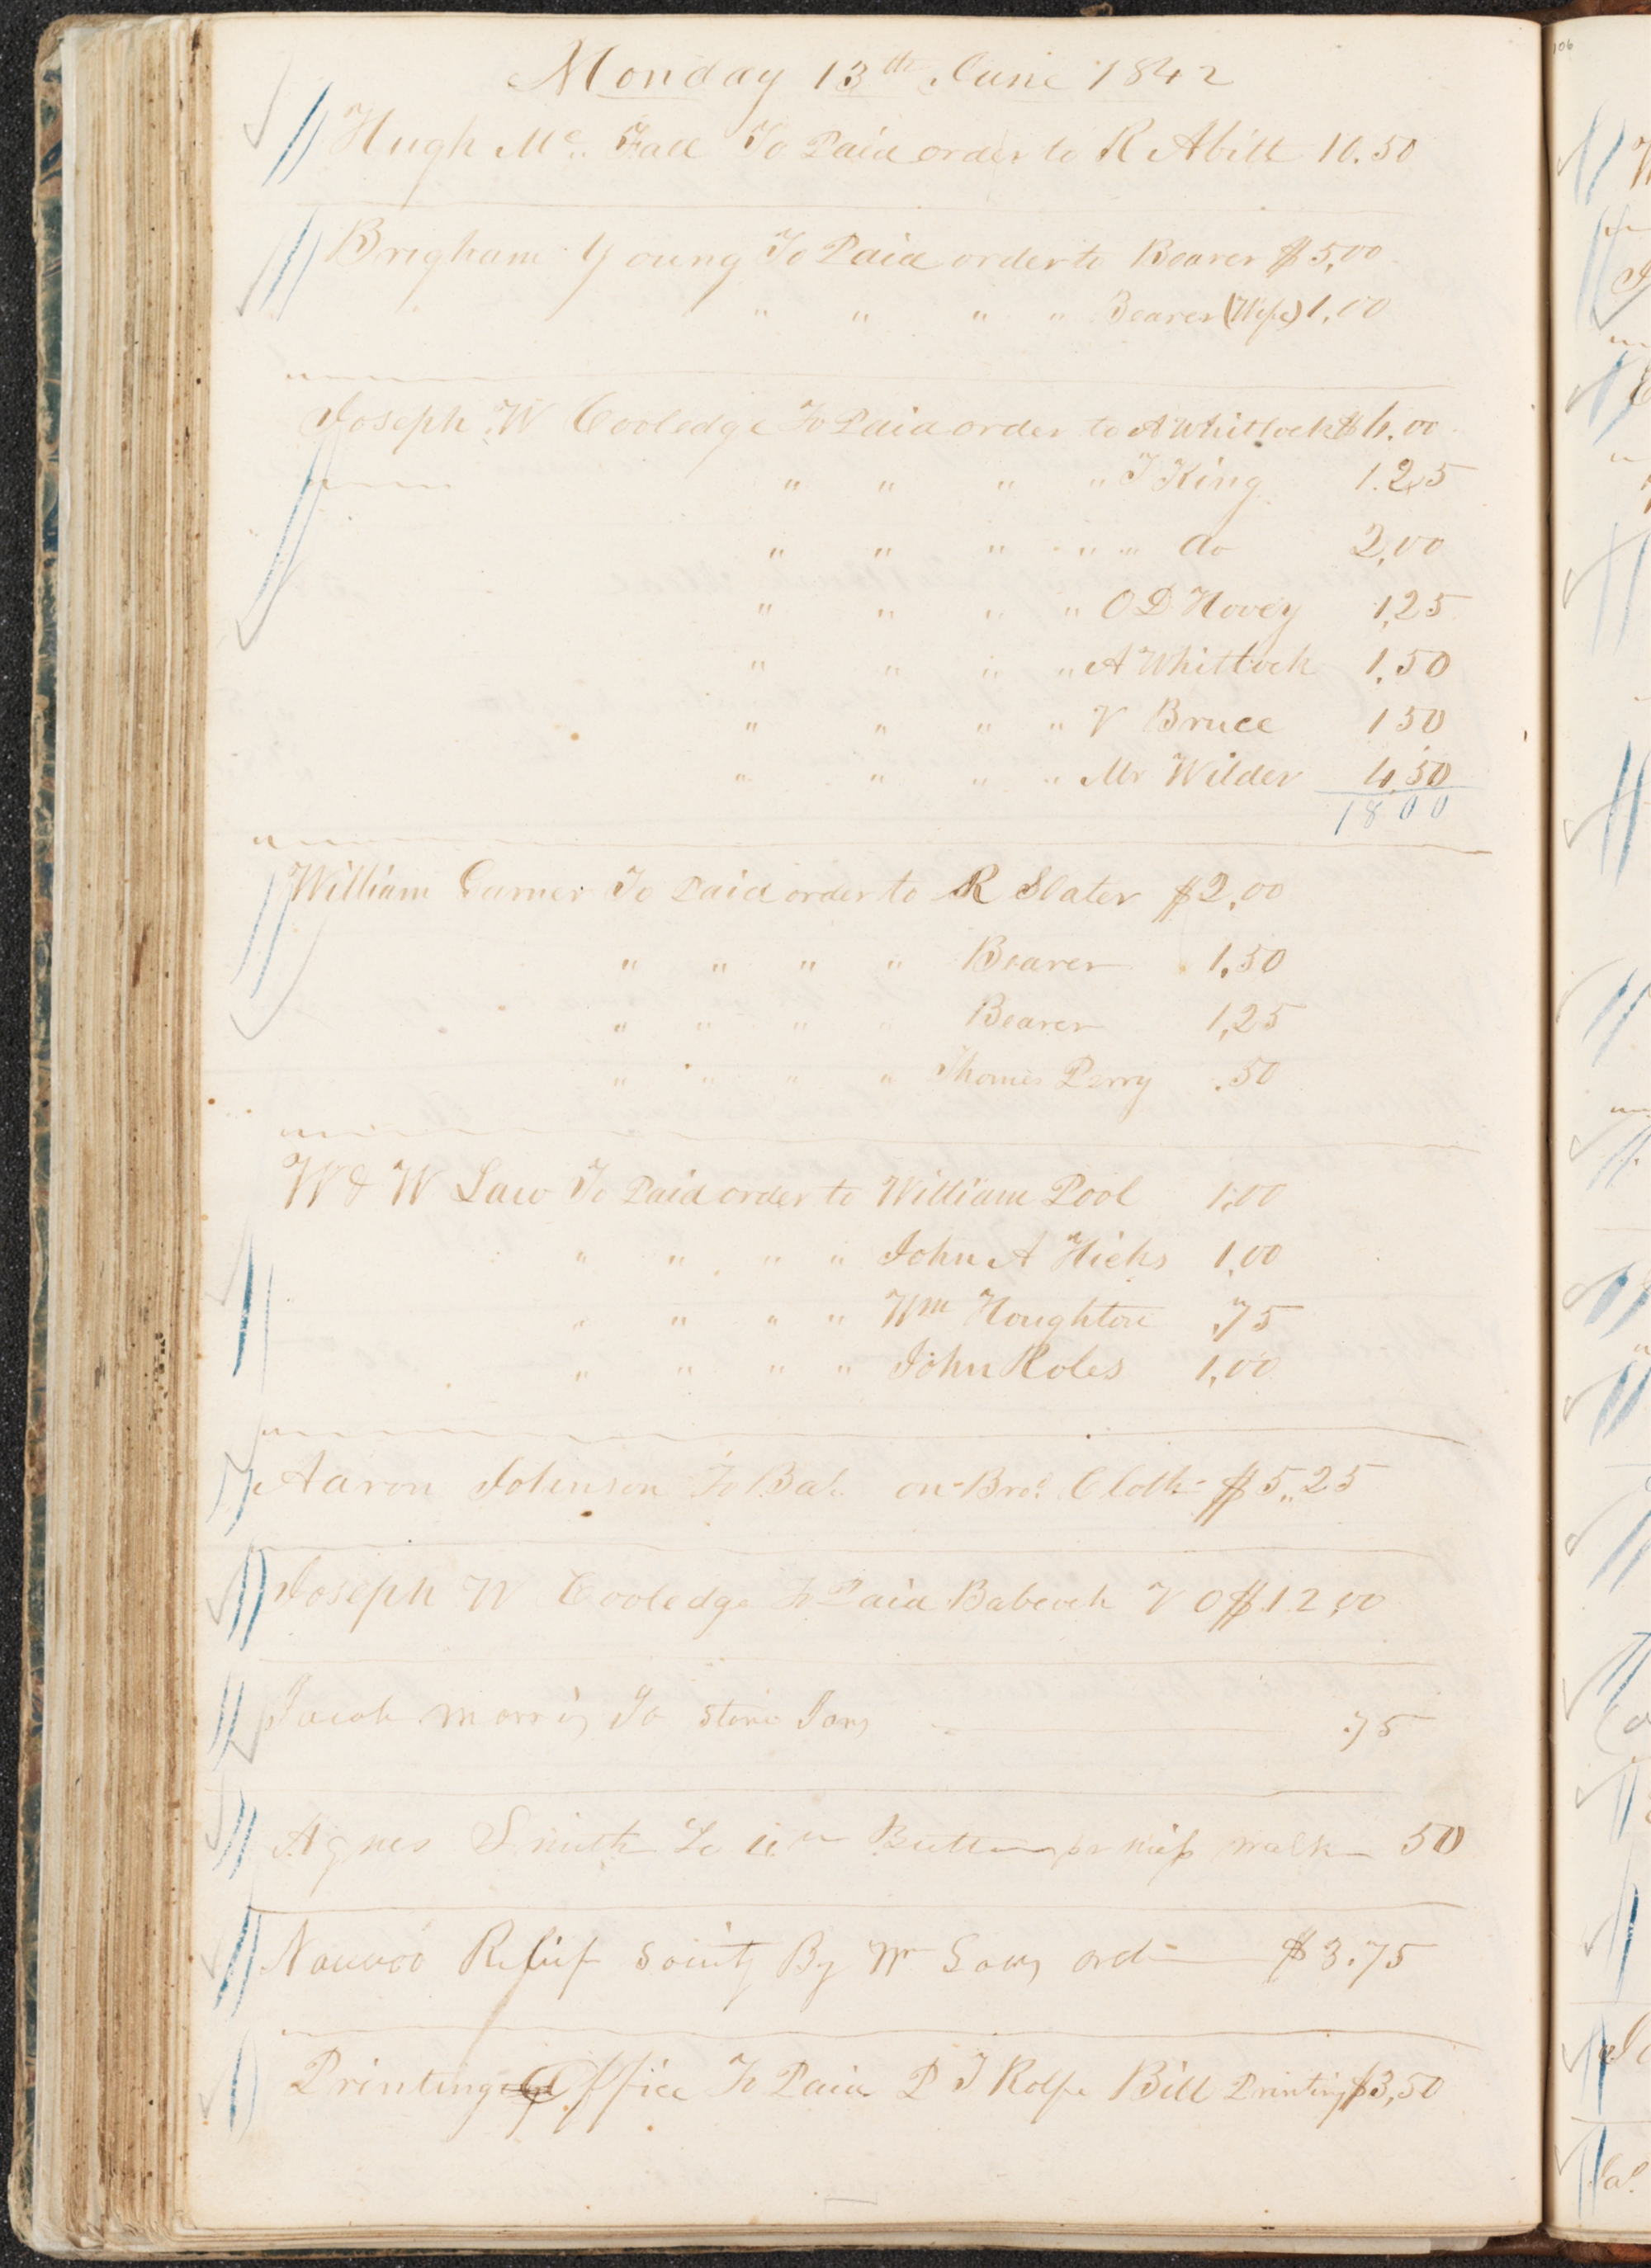 Monday 13th June 1842
Hugh Mc. Fall To Paid order to R Abitt 10.50
Brigham Young To Paid order to Bearer $5,00
" " " " Bearer (Wife) 1,00
Joseph W Cooledge To Paid order to A Whitlock $6.00
" " " " T King 1.25
" " " " " do 2,00
" " " " O D Hovey 1,25
" " " " A Whitlock 1,50
" " " " V Bruce 1 50
" " " " Mr Wilder 4.50
18 00
William Garner To Paid order to R Slater $2,00
" " " " Bearer 1,50
" " " " Bearer 1,25
" " " " Thomas Perry .50
W & W Law To Paid order to William Pool 1,00
" " " " John A Hicks 1,00
" " " " Wm Houghton ,75
" " " " John Roles 1,00
Aaron Johnson To Bal. on Bro. Cloth $5,,25
Joseph W Cooledge To Paid Babcock V O $12,00
Jacob Morris To Stone Jars .75
Agnes Smith To Butter pr Miss 50
Nauvoo Relief Soiety By Wm Laws ord $3.75
Printing Office To Paid P T Rolfe Bill Printing $3,50
106